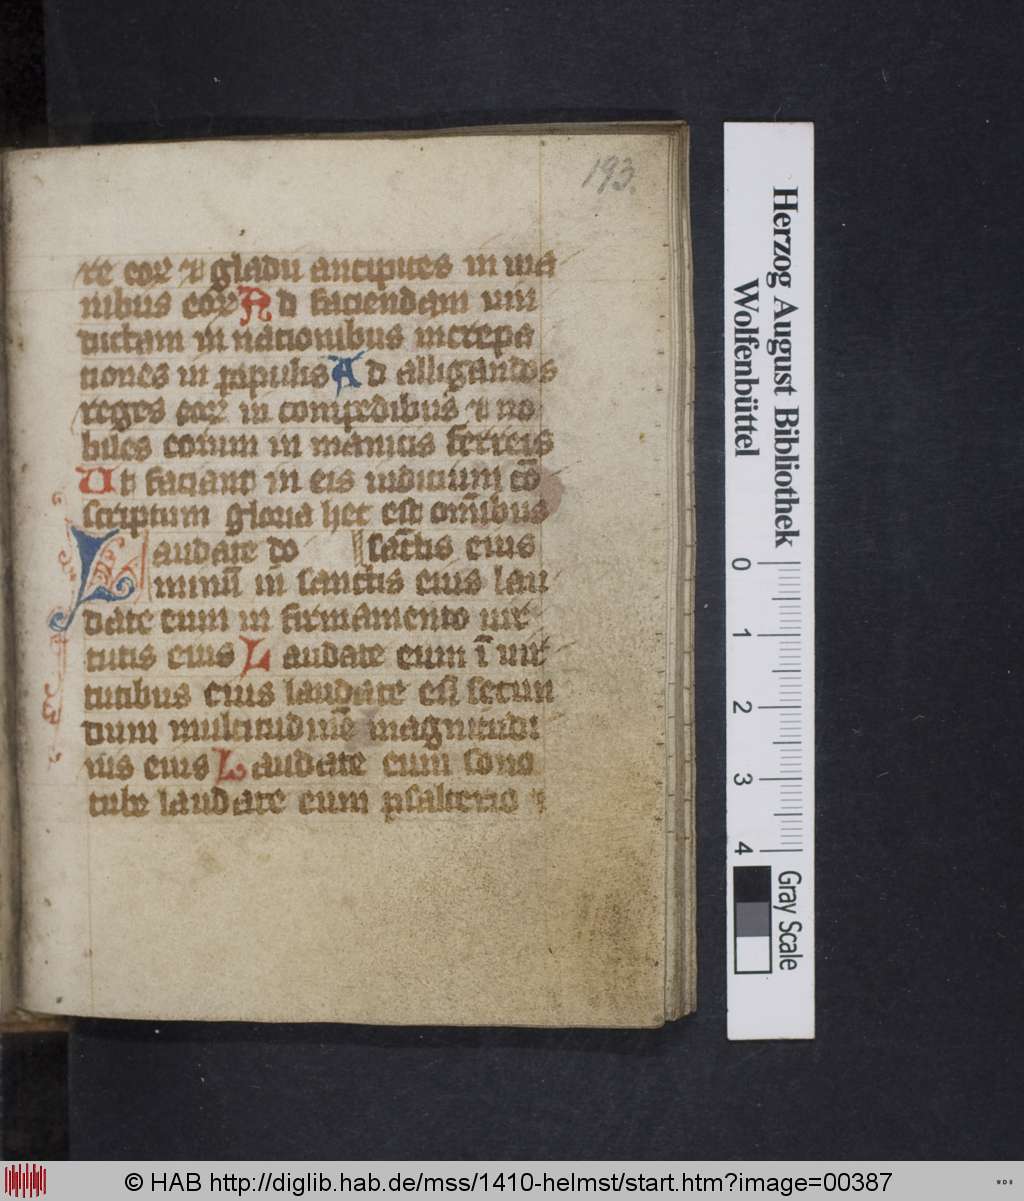 193.
re eorꝝ ⁊ gladii ancipites in ma
nibus eorꝝ Ad faciendam uin
dictam in nationibus increpa
tiones in populis Ad alligandos
reges eorꝝ in compedibus ⁊ no
biles eorum in manicis ferreis
Ut faciant in eis iudicium cō
scriptum gloria hec est om̄ibus
Laudate do sāctis eius
minū in sanctis eius lau
date eum in firmamento uir
tutis eius Laudate eum ī uir
tutibus eius laudate eū secun
dum multitudinē magnitudi
nis eius Laudate eum sono
tube laudate eum psalterio ⁊
Herzog August Bibliothek
Wolfenbüttel
0 1 2 3 4
Gray Scale
© HAB http://diglib.hab.de/mss/1410-helmst/start.htm?image=00387